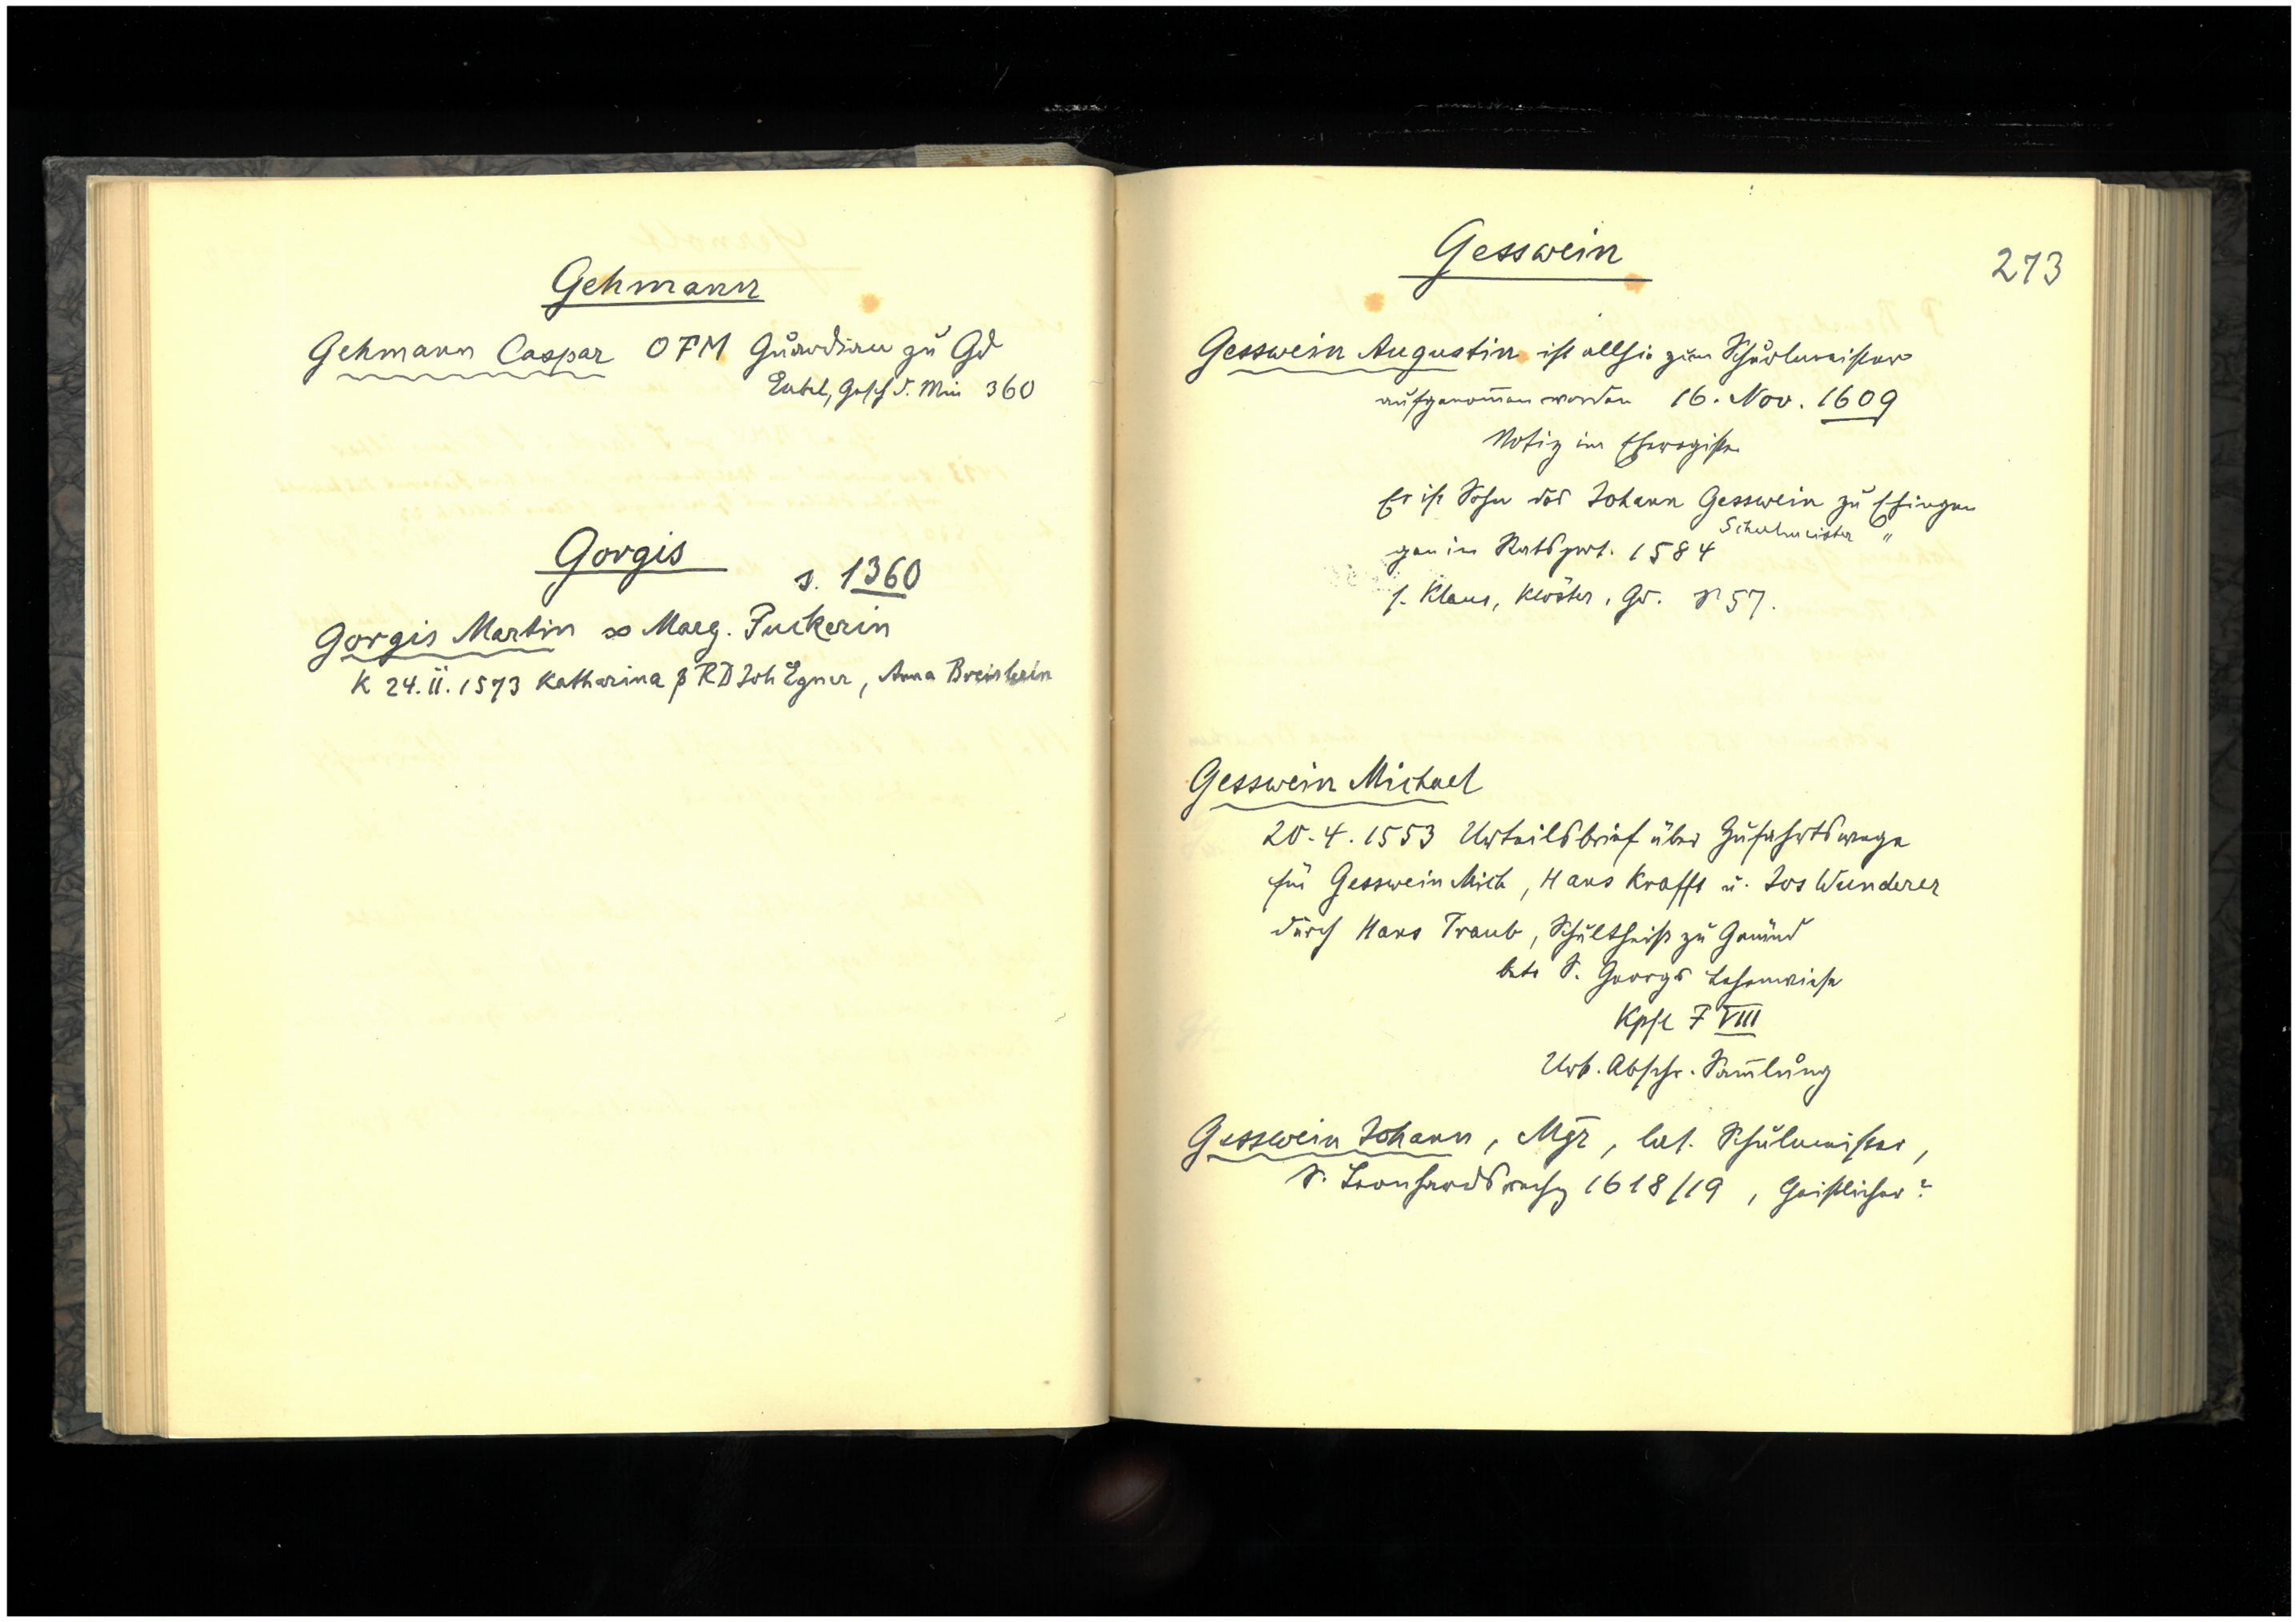 Gehmann
Gehmann Caspar OFM Guardian zu Gd
Eubel, Gesch d. Min 360
Gorgis
s. 1360
Gorgis Martin ∞ Marg. Puckerin
K 24.II.1573 Katharina p RD Joh Egner, Anna
273
Gesswein
Gesswein Augustin ist allhie zum Schuelmeister
aufgenom̅en worden 16. Nov. 1609
Notiz im Eheregister
Er ist Sohn des Johann Gesswein zu
Schulmeister "
gen in Ratsprot. 1584
s. Klaus, Klöster, Gd. p 57.
Gesswein Michael
20.4.1553 Urteilsbrief über Zufahrtswege
für Gesswein Mich, Hans Krafft u. Jos Wunderer
durch Hans Traub, Schultheiß zu Gmünd
betr S. Georgs Lehenwiese
Kpfl F VIII
Urk. Abschr. Sam̅lung
Gesswein Johann, Mgr, lat. Schulmeister,
S. Leonhardsrechg 1618/19, Geistlicher?